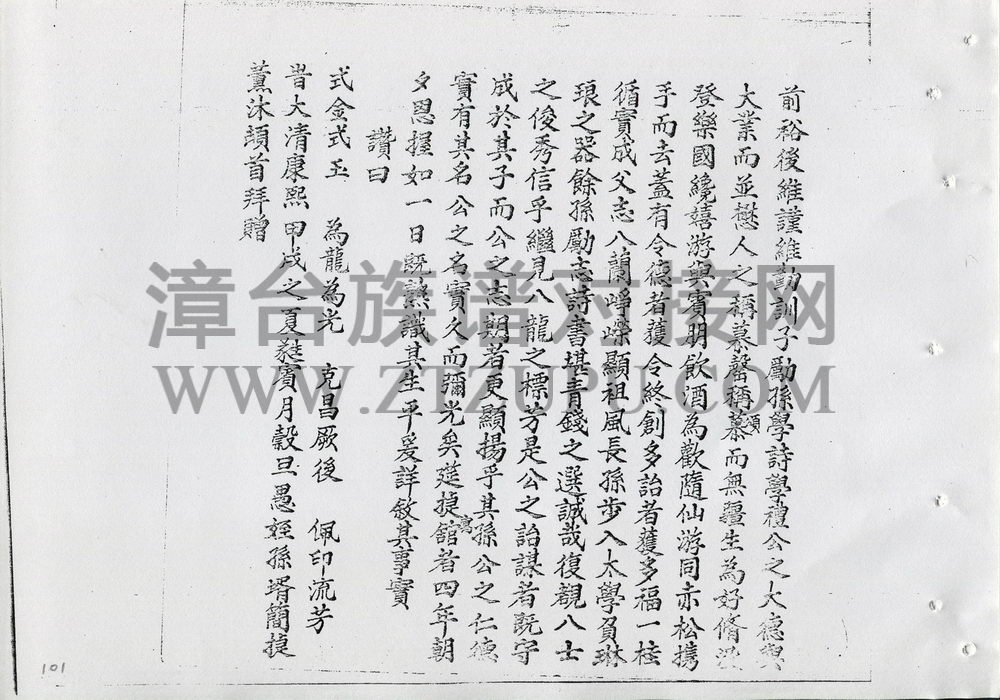 前裕後維謹維勤訓子勵孫學詩學禮公之大德與
大業而並懋人之稱慕罄稱慕而無疆生為好脩
頌
登樂國纔嬉游與賓朋飲酒為歡隨仙游同赤松携
手而去蓋有令德者獲令終創多詒者獲多福一枝
循實成父志八蘭崢嶸顯祖風長孫步入太學負琳
琅之器餘孫勵志詩書堪青錢之選誠哉復覩八士
之俊秀信乎繼見八龍之標芳是公之詒謀者既守
成於其子而公之志期者更顯揚乎其孫公之仁德
實有其名公之名實久而彌光矣筵㨗舘者四年朝
寓
夕恩握如一日既熟識其生平爰詳敘其事實
讚曰
式金式玉 為龍為光 克昌厥後 佩印流芳
旹大清康熙甲戌之夏蕤賓月穀旦愚姪孫壻簡㨗
薰沐頓首拜贈
101
漳台族谱对接网
WWW.ZTZUPU.COM